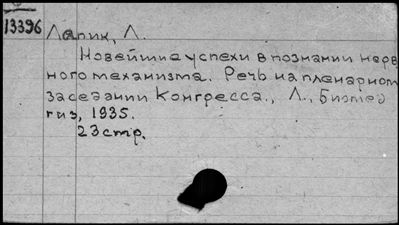 13396
Лапик, Л.
Новейшие успехи в познании нерв
ного механизма. Речь на пленарном
заседании Конгресса., Л., Биомед
гиз, 1935.
23 стр.